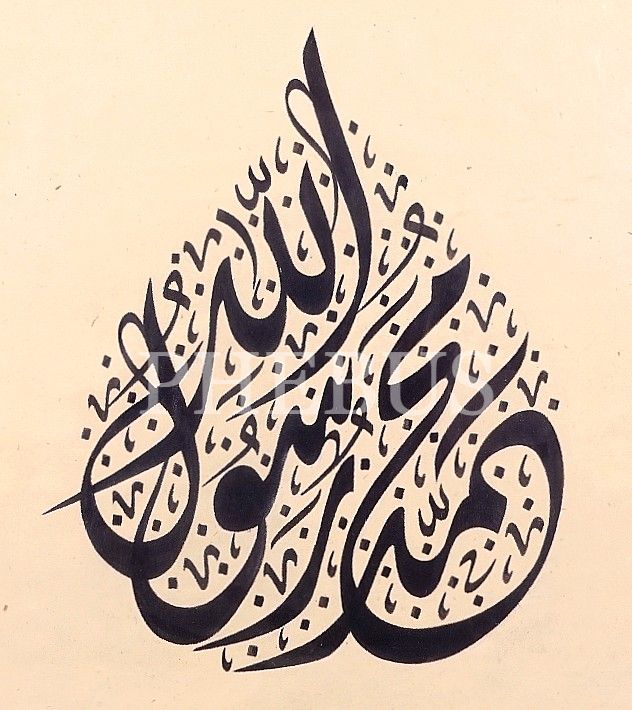 محمد رسول الله
PHEBUS